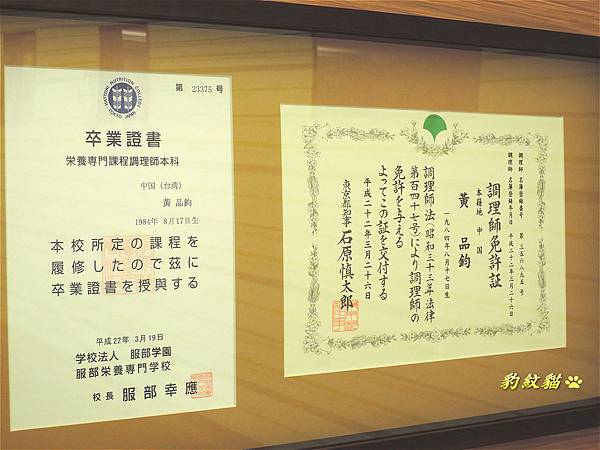 HATTORI NUTRITION COLLEGE
TOKYO JAPAN
第 23375 号
卒業證書
栄養専門課程調理師本科
中国(台湾)
黄 品鈞
1984年 8月17日生
本校所定の課程を
履修したので茲に
卒業證書を授與する
平成22年 3月19日
学校法人 服部学園
服部栄養専門学校
校長 服部幸應
調理師 名簿登録番号 第三五六八九五号
調理師 名簿登録年月日 平成二十二年三月二十六日
調理師免許証
本籍地 中国
黄 品鈞
一九八四年八月十七日生
調理師法(昭和三十三年法律
第百四十七号)により調理師の
免許を与える
よってこの証を交付する
平成二十二年三月二十六日
東京都知事 石原慎太郎
豹紋貓